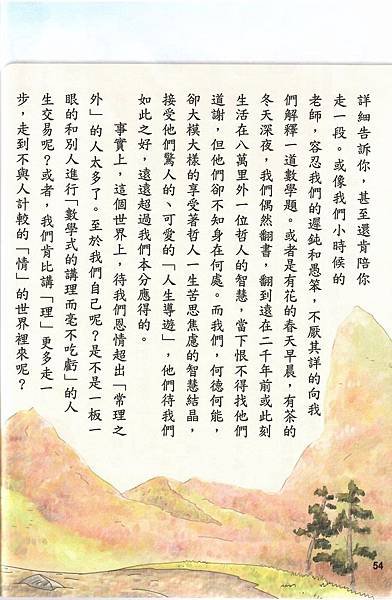 詳細告訴你，甚至還肯陪你
走一段。或像我們小時候的
老師，容忍我們的遲鈍和愚笨，不厭其詳的向我
們解釋一道數學題。或者是有花的春天早晨，有茶的
冬天深夜，我們偶然翻書，翻到遠在二千年前或此刻
生活在八萬里外一位哲人的智慧，當下恨不得找他們
道謝，但他們卻不知身在何處。而我們，何德何能，
卻大模大樣的享受著哲人一生苦思焦慮的智慧結晶，
接受他們驚人的、可愛的「人生導遊」，他們待我們
如此之好，遠遠超過我們本分應得的。
事實上，這個世界上，待我們恩情超出「常理之
外」的人太多了。至於我們自己呢？是不是一板一
眼的和別人進行「數學式的講理而毫不吃虧」的人
生交易呢？或者，我們肯比講「理」更多走一
步，走到不與人計較的「情」的世界裡來呢？
54